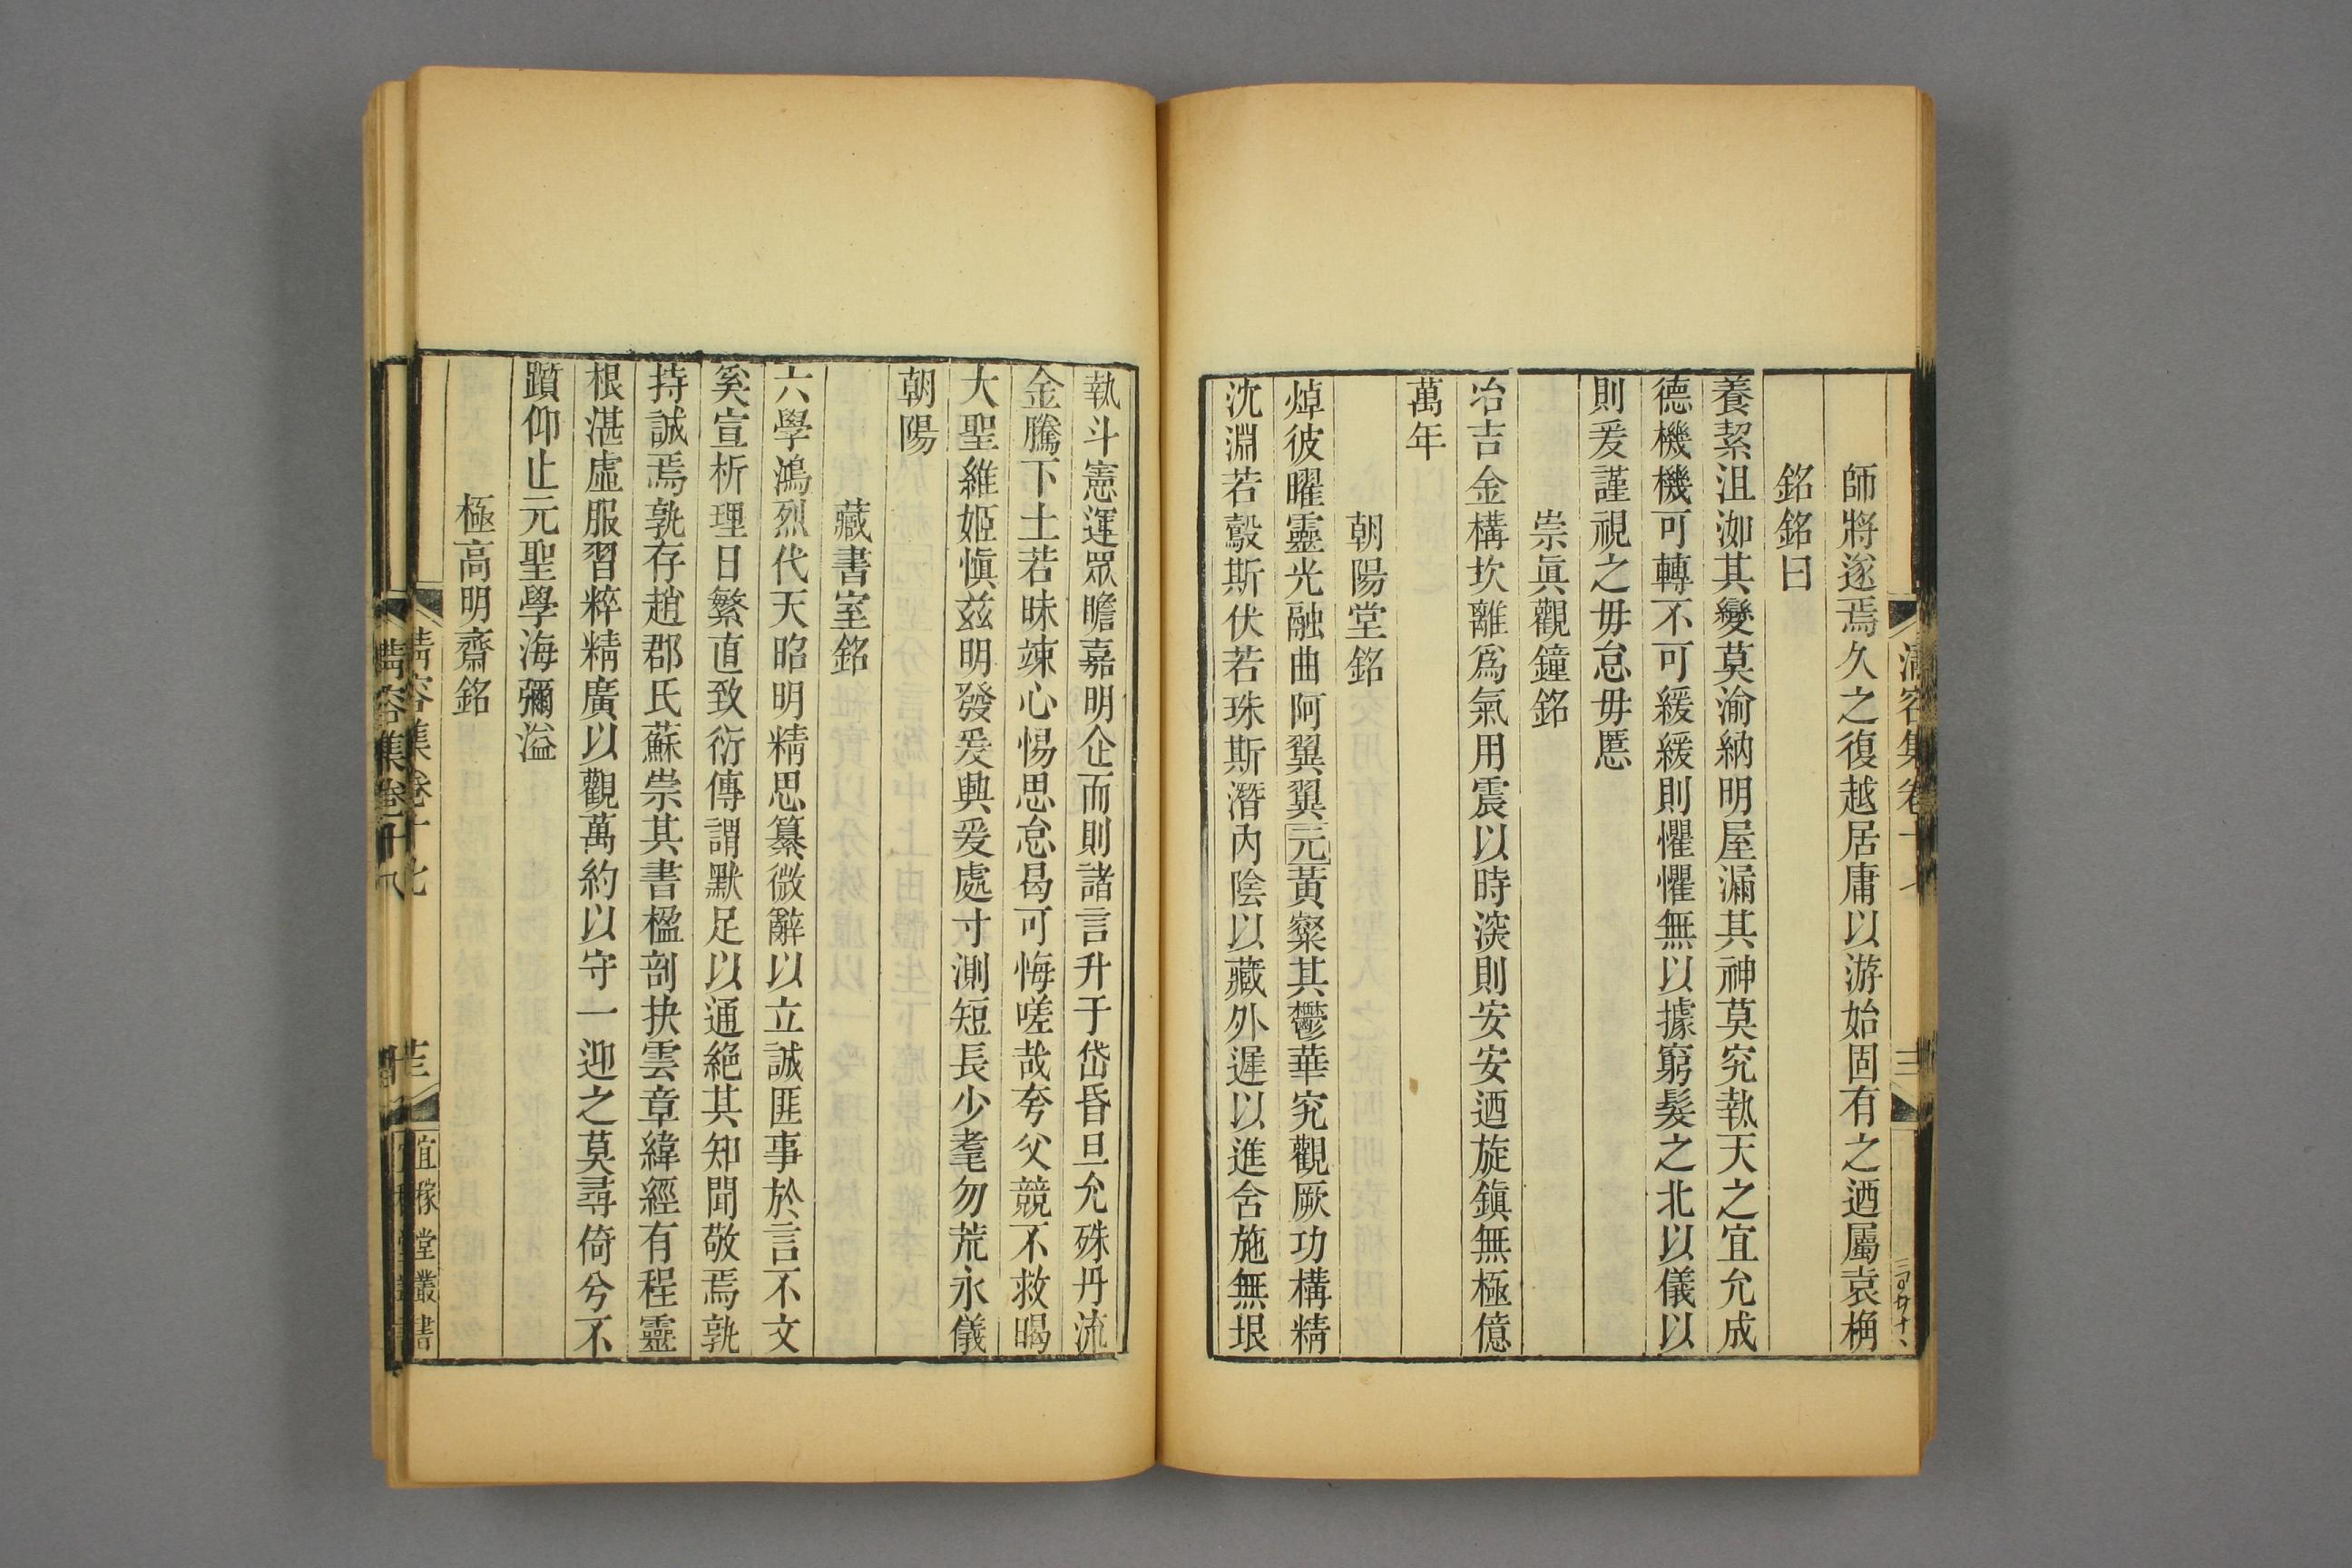 師將遂焉久之復越居庸以游始固有之迺屬袁桷
銘銘曰
養絜沮洳其變莫渝納明屋漏其神莫究執天之宜允成
德機機可轉不可緩緩則懼懼無以據窮髮之北以儀以
則爰謹視之毋怠毋慝
崇眞觀鐘銘
冶吉金構坎離爲氣用震以時湥則安安迺旋鎭無極億
萬年
朝陽堂銘
焯彼曜靈光融曲阿翼翼元黃粲其鬱華究觀厥功構精
沈淵若鷇斯伏若珠斯潛內陰以藏外遲以進舍施無垠
執斗憲運眾瞻嘉明企而則諸言升于岱昏旦允殊丹流
金騰下土若昧竦心惕思怠曷可悔嗟哉夸父競不救暍
大聖維姬愼兹明發爰興爰處寸測短長少耄勿荒永儀
朝陽
藏書室銘
六學鴻烈代天昭明精思纂微辭以立誠匪事於言不文
奚宣析理日繁直致衍傳謂默足以通絕其知聞敬焉孰
持誠焉孰存趙郡氏蘇崇其書楹剖抉雲章緯經有程靈
根湛虛服習粹精廣以觀萬約以守一迎之莫尋倚兮不
躓仰止元聖學海彌溢
極高明齋銘
清容集卷十七
宜稼堂叢書